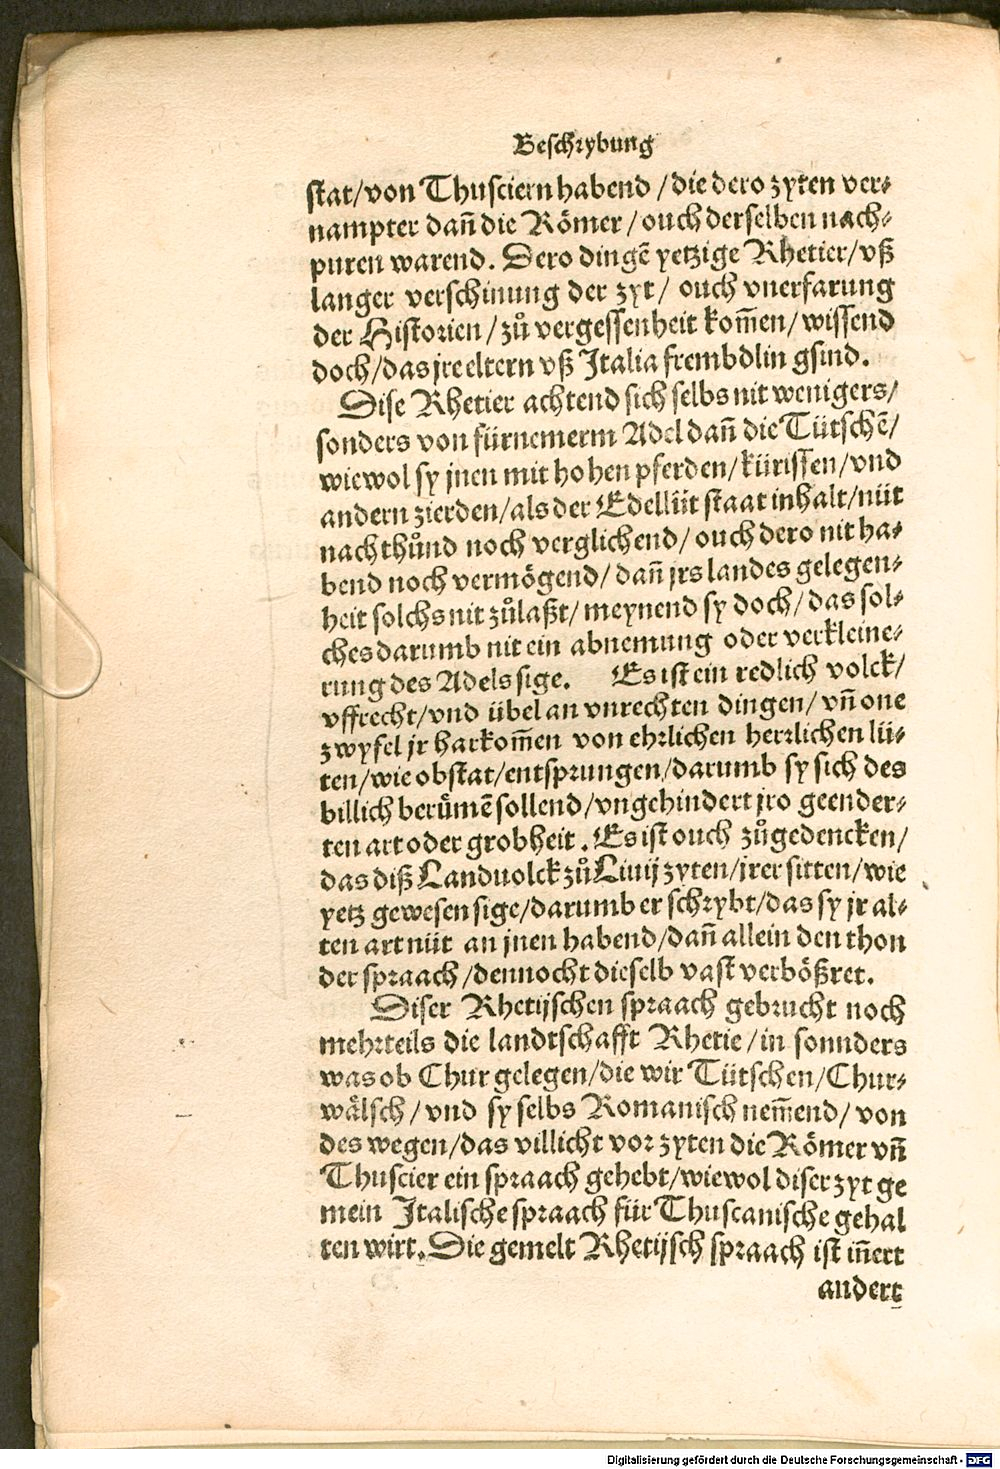 Beschrybung
stat/von Thusciern habend/die dero zyten ver⸗
nampter dañ die Römer/ouch derselben nach⸗
puren warend. Dero dingē yetzige Rhetier/vß
langer verschinung der zyt/ ouch vnerfarung
der Historien/zů vergessenheit kom̃en/wissend
doch/das jre eltern vß Italia frembdlin gsind.
Dise Rhetier achtend sich selbs nit wenigers/
sonders von fürnemerm Adel dañ die Tütschē/
wiewol sy jnen mit hohen pferden/kürissen/vnd
andern zierden/als der Edellüt staat inhalt/nüt
nachthůnd noch verglichend/ouch dero nit ha⸗
bend noch vermögend/dañ jrs landes gelegen⸗
heit solchs nit zůlaßt/meynend sy doch/das sol⸗
ches darumb nit ein abnemung oder verkleine⸗
rung des Adels sige. Es ist ein redlich volck/
vffrecht/vnd übel an vnrechten dingen/vñ one
zwyfel jr harkom̃en von ehrlichen herrlichen lü⸗
ten/wie obstat/entsprungen/darumb sy sich des
billich berümē sollend/vngehindert jro geender⸗
ten art oder grobheit. Es ist ouch zůgedencken/
das diß Landuolck zů Liuij zyten/jrer sitten/wie
yetz gewesen sige/darumb er schrybt/das sy jr al⸗
ten art nüt an jnen habend/dañ allein den thon
der spraach/dennocht dieselb vast verbößret.
Diser Rhetijschen spraach gebrucht noch
mehrteils die landtschafft Rhetie/in sonnders
was ob Chur gelegen/die wir Tütschen/Chur⸗
wälsch/vnd sy selbs Romanisch nem̃end/von
des wegen/das villicht vor zyten die Römer vñ
Thuscier ein spraach gehebt/wiewol diser zyt ge
mein Italische spraach für Thuscanische gehal
ten wirt. Die gemelt Rhetijsch spraach ist iñert
andert
Digitalisierung gefördert durch die Deutsche Forschungsgemeinschaft - DFG